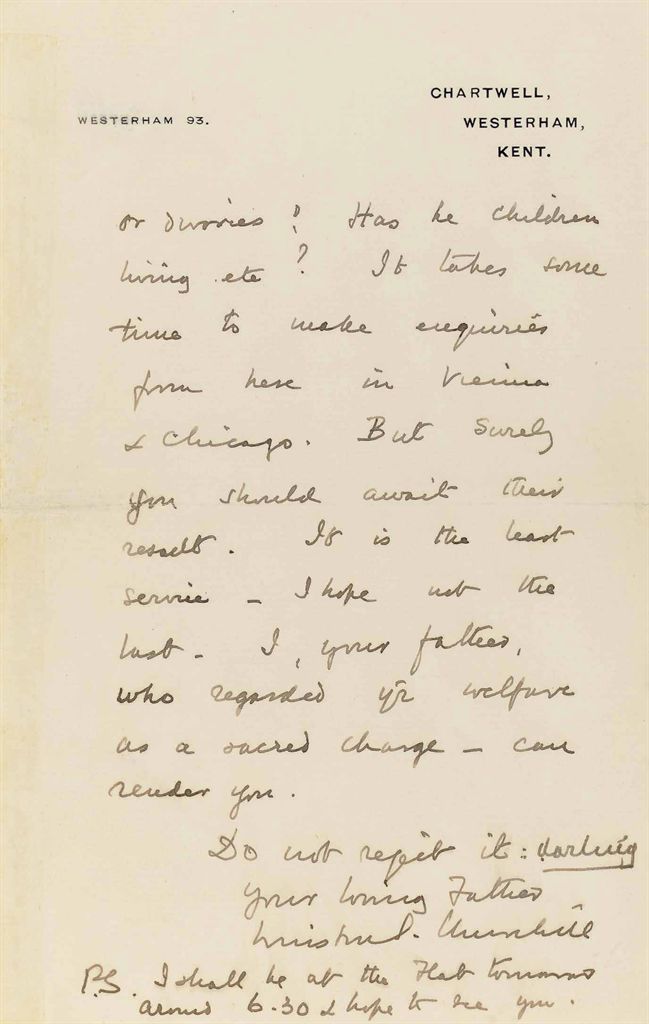 CHARTWELL,
WESTERHAM 93.
WESTERHAM,
KENT.
or divories? Has he children
living etc? It takes some
time to make enquiries
from here in Vienna
& Chicago. But surely
you should await their
result. It is the least
service – I hope not the
last – I, your father,
who regarded yr welfare
as a sacred charge – can
render you.
Do not reject it: darling
Your loving Father
Winston S. Churchill
P.S. I shall be at the Flat tomorrow
around 6.30 & hope to see you.